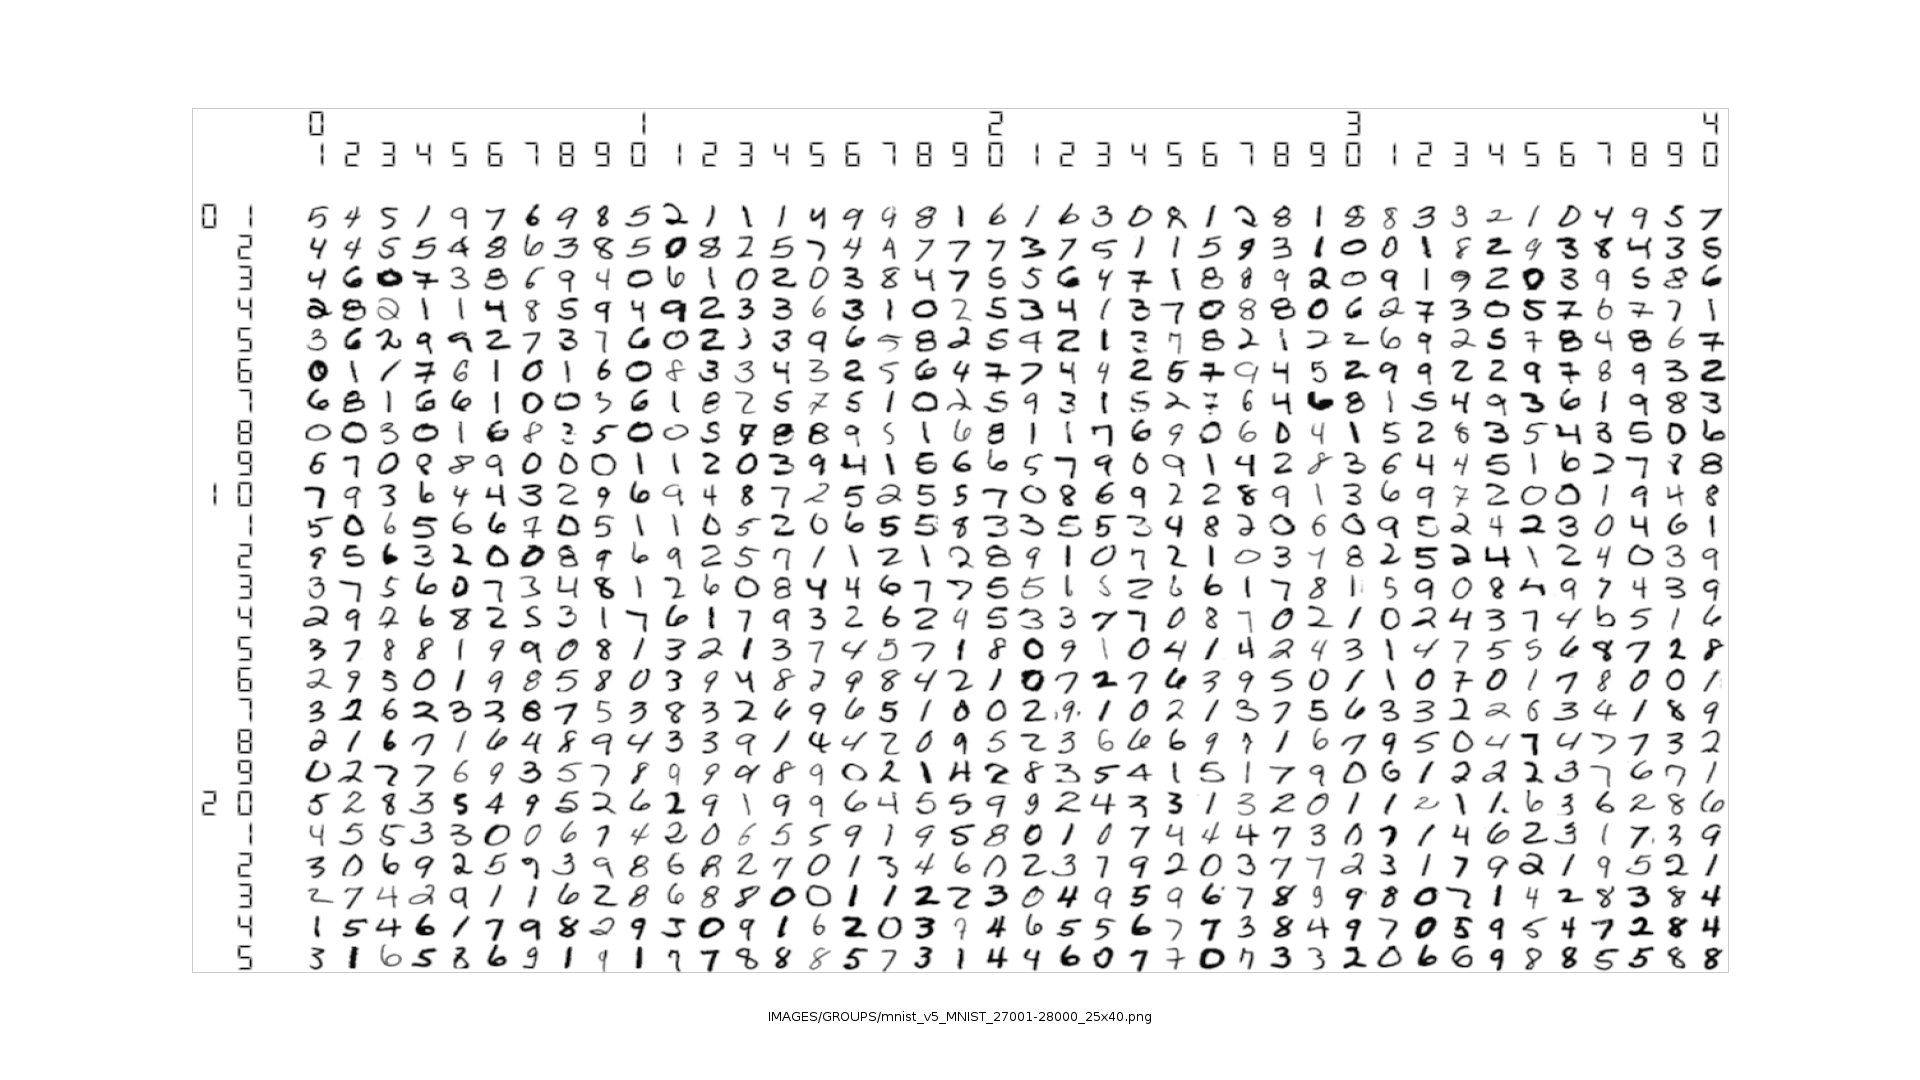 0 1 2 3 4
1 2 3 4 5 6 7 8 9 0 1 2 3 4 5 6 7 8 9 0 1 2 3 4 5 6 7 8 9 0 1 2 3 4 5 6 7 8 9 0
0 1 5 4 5 1 9 7 6 9 8 5 2 1 1 1 4 9 9 8 1 6 1 6 3 0 8 1 2 8 1 8 8 3 3 2 1 0 4 9 5 7
2 4 4 5 5 4 8 6 3 8 5 0 8 2 5 7 4 9 7 7 7 3 7 5 1 1 5 9 3 1 0 0 1 8 2 9 3 8 4 3 5
3 4 6 0 7 3 8 6 9 4 0 6 1 0 2 0 3 8 4 7 5 5 6 4 7 1 8 8 9 2 0 9 1 9 2 0 3 9 5 8 6
4 2 8 2 1 1 4 8 5 9 4 9 2 3 3 6 3 1 0 2 5 3 4 1 3 7 0 8 8 0 6 2 7 3 0 5 7 6 7 7 1
5 3 6 2 9 9 2 7 3 7 6 0 2 3 3 9 6 5 8 2 5 9 2 1 3 7 8 2 1 2 2 6 9 2 5 7 8 4 8 6 7
6 0 1 1 7 6 1 0 1 6 0 8 3 3 4 3 2 5 6 4 7 7 4 4 2 5 7 9 4 5 2 9 9 2 2 9 7 8 9 3 2
7 6 8 1 6 6 1 0 0 3 6 1 8 2 5 7 5 1 0 2 5 9 3 1 5 2 7 6 4 6 8 1 5 4 9 3 6 1 9 8 3
8 0 0 3 0 1 6 8 3 5 0 0 5 7 8 8 9 5 1 6 8 1 1 7 6 9 0 6 0 4 1 5 2 8 3 5 4 3 5 0 6
9 6 7 0 8 8 9 0 0 0 1 1 2 0 3 9 4 1 5 6 6 5 7 9 0 9 1 4 2 8 3 6 4 4 5 1 6 2 7 8 8
1 0 7 9 3 6 4 4 3 2 9 6 9 4 8 7 2 5 2 5 5 7 0 8 6 9 2 2 8 9 1 3 6 9 7 2 0 0 1 9 4 8
1 5 0 6 5 6 6 7 0 5 1 1 0 5 2 0 6 5 5 8 3 3 5 5 3 4 8 2 0 6 0 9 5 2 4 2 3 0 4 6 1
2 9 5 6 3 2 0 0 8 9 6 9 2 5 7 1 1 2 1 2 8 9 1 0 7 2 1 0 3 9 8 2 5 2 4 1 2 4 0 3 9
3 3 7 5 6 0 7 3 4 8 1 2 6 0 8 4 4 6 7 7 5 5 1 5 2 6 6 1 7 8 1 5 9 0 8 4 9 7 4 3 9
4 2 9 2 6 8 2 5 3 1 7 6 1 7 9 3 2 6 2 9 5 3 3 7 7 0 8 7 0 2 1 0 2 4 3 7 4 6 5 1 6
5 3 7 8 8 1 9 9 0 8 1 3 2 1 3 7 4 5 7 1 8 0 9 1 0 4 1 4 2 4 3 1 4 7 5 5 6 8 7 2 8
6 2 9 5 0 1 9 8 5 8 0 3 9 4 8 2 9 8 4 2 1 0 7 2 7 6 3 9 5 0 1 1 0 7 0 1 7 8 0 0 1
7 3 2 6 2 3 3 8 7 5 3 8 3 2 6 9 6 5 1 0 0 2 9 1 0 2 1 3 7 5 6 3 3 2 2 6 3 4 1 8 9
8 2 1 6 7 1 6 4 8 9 4 3 3 9 1 4 4 2 0 9 5 2 3 6 6 6 9 7 1 6 7 9 5 0 4 7 4 7 7 3 2
9 0 2 7 7 6 9 3 5 7 8 9 9 9 8 9 0 2 1 4 2 8 3 5 4 1 5 1 7 9 0 6 1 2 2 2 3 7 6 7 1
2 0 5 2 8 3 5 4 9 5 2 6 2 9 1 9 9 6 4 5 5 9 9 2 4 3 3 1 3 2 0 1 1 2 1 1 6 3 6 2 8 6
1 4 5 5 3 3 0 0 6 7 4 2 0 6 5 5 9 1 9 5 8 0 1 0 7 4 4 4 7 3 0 7 1 4 6 2 3 1 7 3 9
2 3 0 6 9 2 5 9 3 9 8 6 8 2 7 0 1 3 4 6 0 2 3 7 9 2 0 3 7 7 2 3 1 7 9 2 1 9 5 2 1
3 2 7 4 2 9 1 1 6 2 8 6 8 8 0 0 1 1 2 2 3 0 4 9 5 9 6 7 8 9 9 8 0 7 1 4 2 8 3 8 4
4 1 5 4 6 1 7 9 8 2 9 5 0 9 1 6 2 0 3 9 4 6 5 5 6 7 7 3 8 4 9 7 0 5 9 5 4 7 2 8 4
5 3 1 6 5 8 6 9 1 9 1 7 7 8 8 8 5 7 3 1 4 4 6 0 7 7 0 7 3 3 2 0 6 6 9 8 8 5 5 8 8
IMAGES/GROUPS/mnist_v5_MNIST_27001-28000_25x40.png